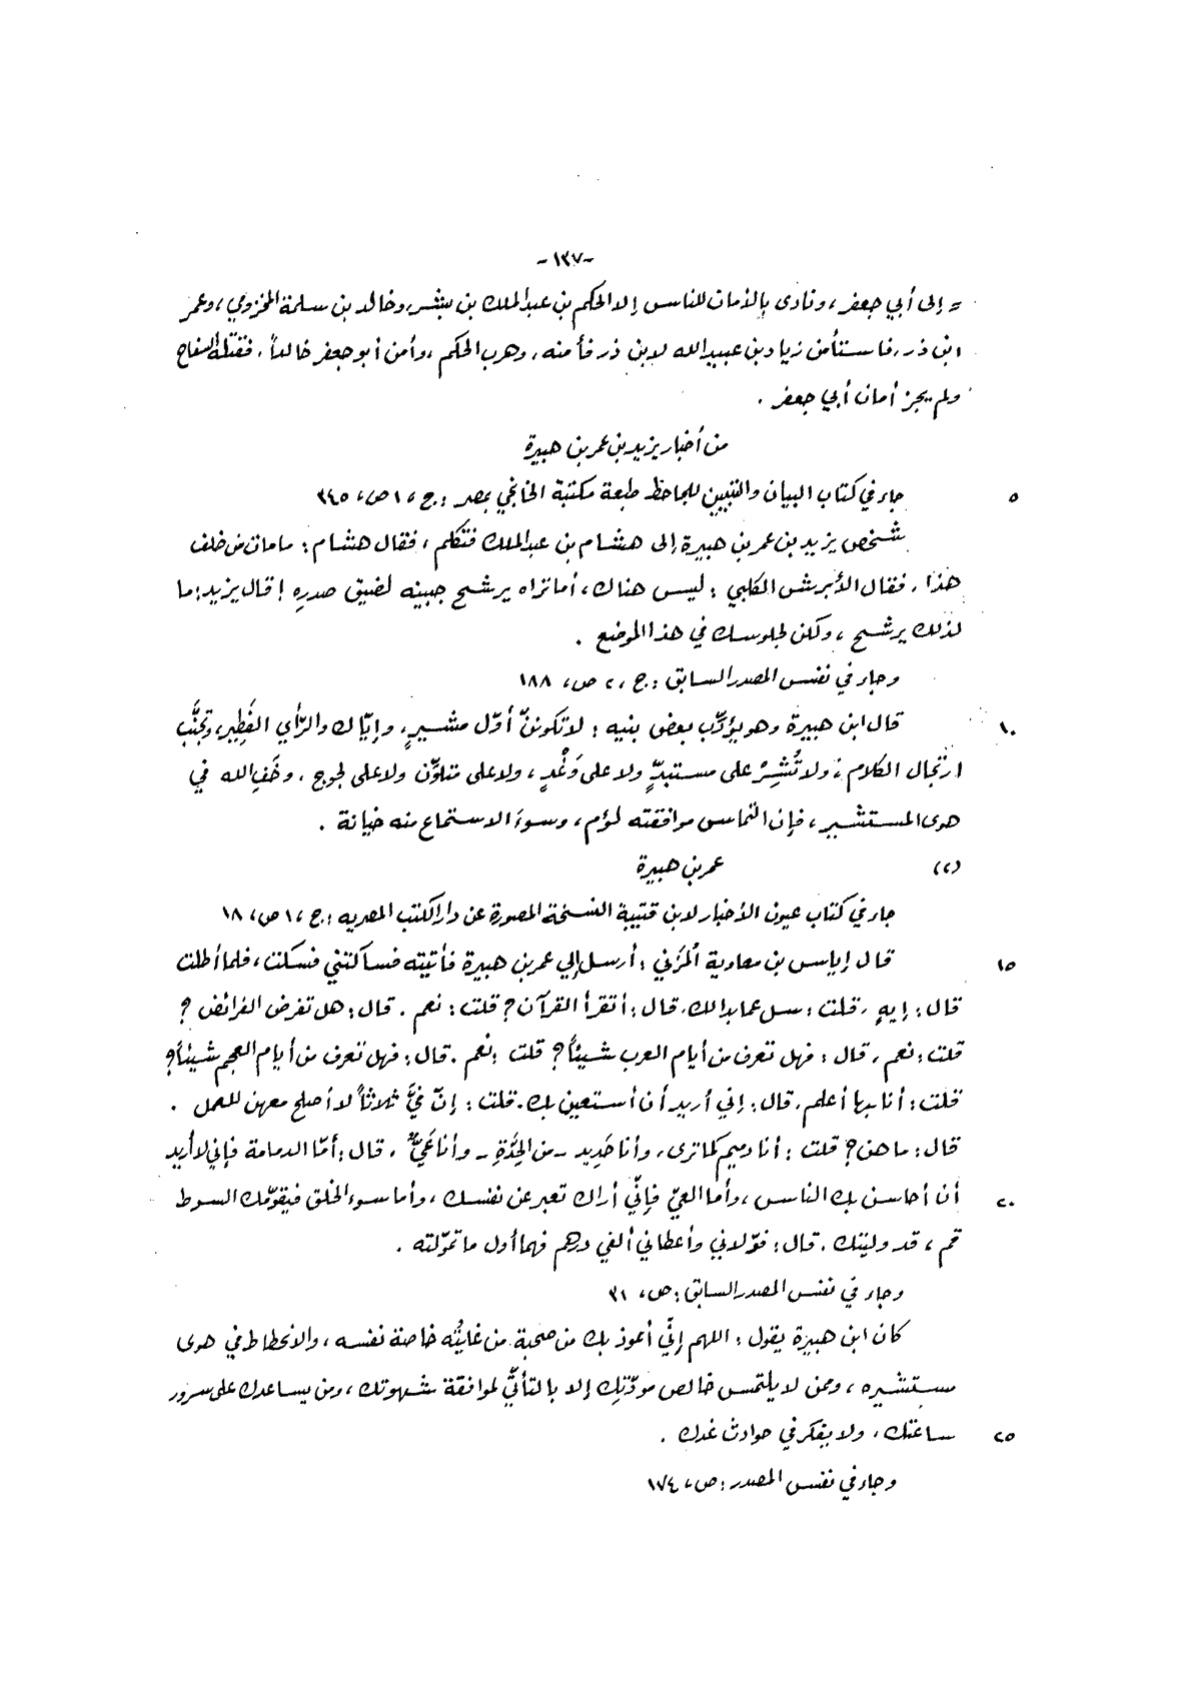 -١٣٧-
= إلى أبي جعفر، ونادى بالأمان للناس إلا الحكم بن عبد الملك بن بشر، وخالد بن سلمة المخزومي، وعمر
ابن ذر، فاستأمن زياد بن عبيد الله لابن ذر فأمنه، وهرب الحكم، وأمن أبو جعفر خالداً، فقتله السفاح
ولم يجز أمان أبي جعفر .
من أخبار يزيد بن عمر بن هبيرة
٥ جاء في كتاب البيان والتبيين للجاحظ طبعة مكتبة الخانجي بمصر : ج ، ١ ص، ٣٤٥
شخص يزيد بن عمر بن هبيرة إلى هشام بن عبد الملك فتكلم ، فقال هشام : ما مات من خلف
هذا ، فقال الأبرش الكلبي : ليس هناك ، أما تراه يرشح جبينه لضيق صدره ! قال يزيد : ما
لذلك يرشح ، ولكن لجلوسك في هذا الموضع .
وجاء في نفس المصدر السابق : ج ، ٢ ص، ١٨٨
١٠ قال ابن هبيرة وهو يؤدّب بعض بنيه : لا تكوننّ أوّل مشيرٍ، وإيّاك والرّأي الفَطِير، وتجنَّب
ارتجال الكلام ، ولا تُشِرْ على مستبدٍّ ولا على وَغْدٍ ، ولا على متلوِّن ولا على لجوج ، وخَفِ الله في
هوى المستشير ، فإن التماس موافقته لؤم ، وسوءَ الاستماع منه خيانة .
(٢) عمر بن هبيرة
جاء في كتاب عيون الأخبار لابن قتيبة النسخة المصورة عن دار الكتب المصريه : ج ، ١ ص، ١٨
١٥ قال إياس بن معاوية المُزَني : أرسل إلي عمر بن هبيرة فأتيته فساكتني فسكت ، فلما أطلت
قال : إيهٍ ، قلت : سل عما بدا لك ، قال : أتقرأ القرآن ؟ قلت : نعم . قال : هل تفرض الفرائض ؟
قلت : نعم ، قال : فهل تعرف من أيام العرب شيئاً ؟ قلت : نعم . قال : فهل تعرف من أيام العجم شيئاً ؟
قلت : أنا بها أعلم ، قال : إني أريد أن أستعين بك . قلت : إنّ فيَّ ثلاثاً لا أصلح معهن للعمل .
قال : ما هن ؟ قلت : أنا دميم كما ترى ، وأنا حَدِيد - من الحِدَّةِ - وأنا عَيِيٌّ ، قال : أمّا الدمامة فإني لا أريد
٢٠ أن أحاسن بك الناس ، وأما العيّ فإنِّي أراك تعبر عن نفسك ، وأما سوء الخلق فيقوّمك السوط
قم ، قد وليتك . قال : فولّاني وأعطاني ألفي درهم فهما أول ما تموّلته .
وجاء في نفس المصدر السابق : ص، ٣١
كان ابن هبيرة يقول : اللهم إنّي أعوذ بك من صحبة من غايتُه خاصة نفسه ، والانحطاط في هوى
مستشيره ، وممن لا يلتمس خالص مودّتك إلا بالتأتّي لموافقة شهوتك ، ومن يساعدك على سرور
٢٥ ساعتك ، ولا يفكر في حوادث غدك .
وجاء في نفس المصدر : ص، ١٧٤